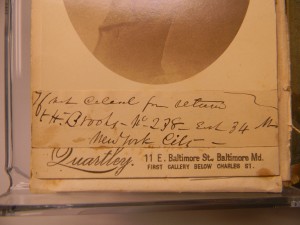 for return
H. Brooks - No 238 - East 34
New York City -
Quartley. 11 E. Baltimore St., Baltimore Md.
FIRST GALLERY BELOW CHARLES ST.